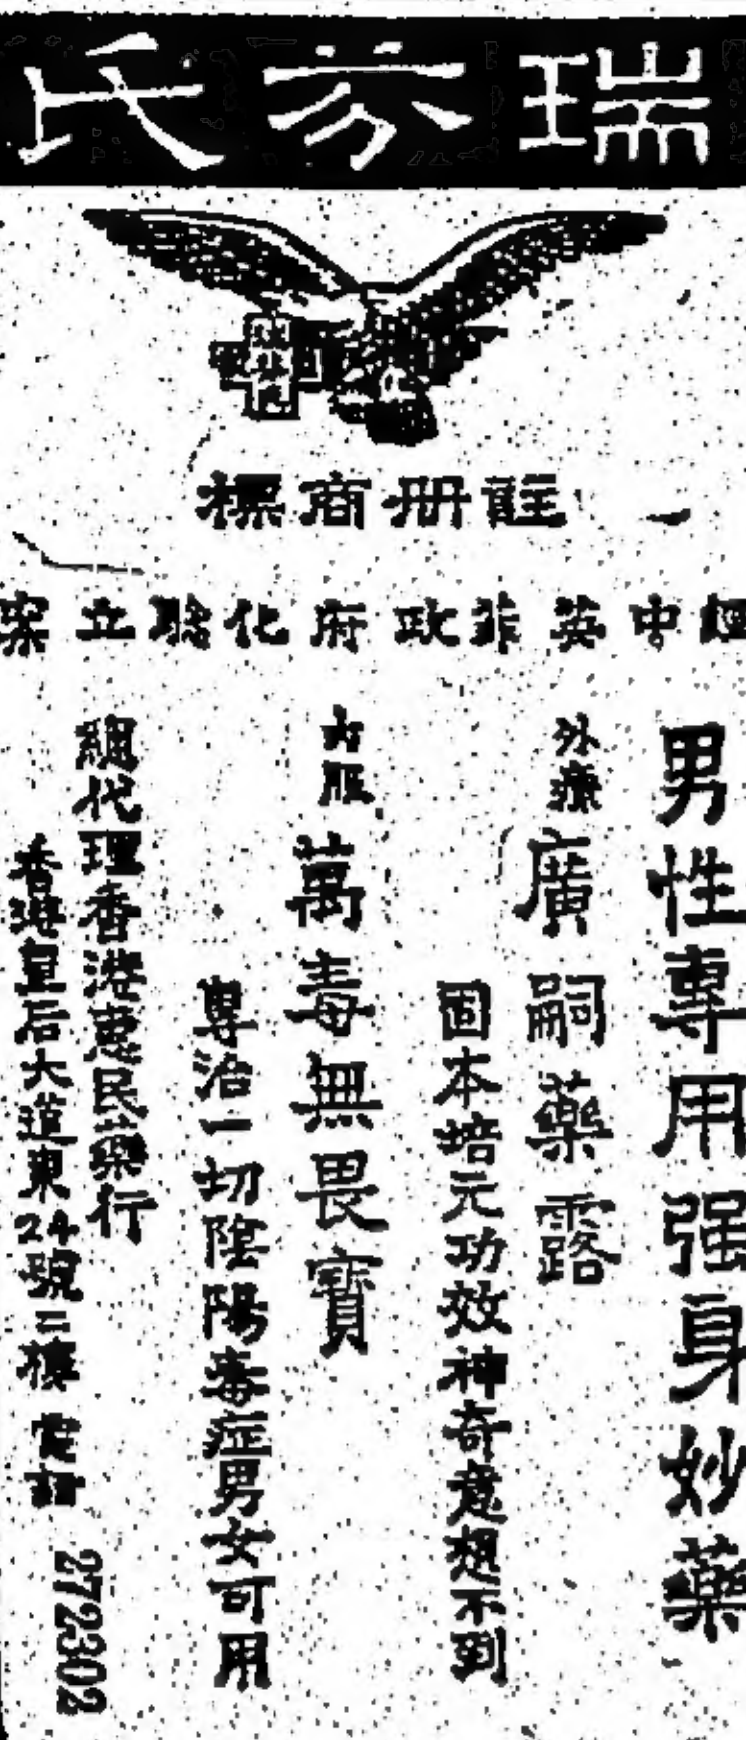 瑞芬氏
註册商標
經中英菲政府化驗立案
男性專用强身妙藥
外療 廣嗣藥露
固本培元功效神奇意想不到
內服 萬毒無畏寶
專治一切陰陽毒症男女可用
總代理香港惠民藥行
香港皇后大道東24號二樓 電話 272302